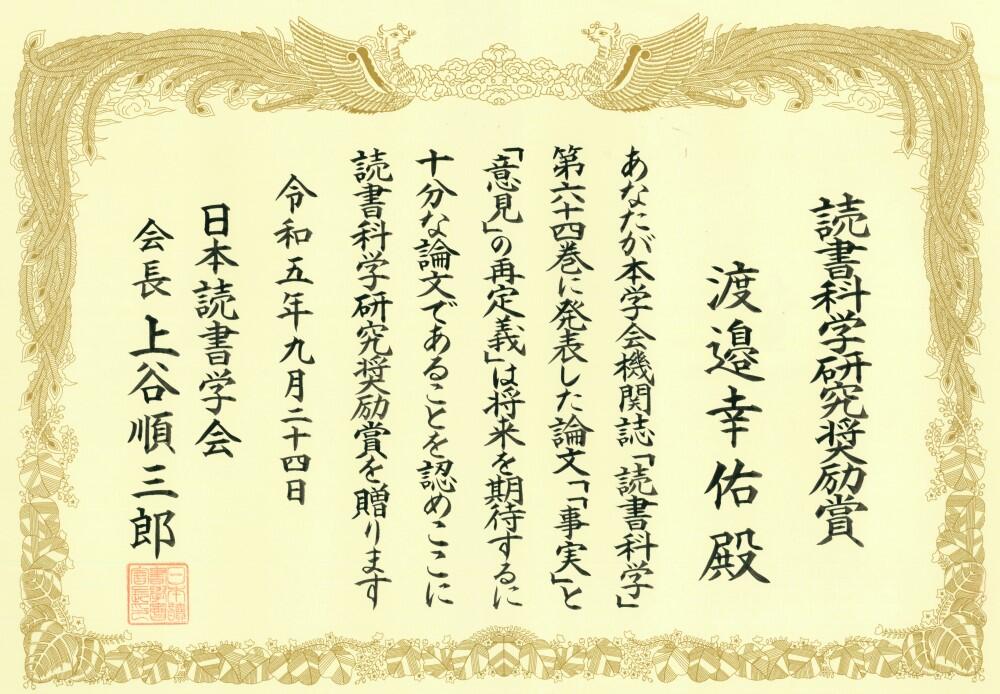 読書科学研究奨励賞
渡邉幸佑殿
あなたが本学会機関誌「読書科学」
第六十四巻に発表した論文「「事実」と
「意見」の再定義」は将来を期待するに
十分な論文であることを認めここに
読書科学研究奨励賞を贈ります
令和五年九月二十四日
日本読書学会
会長上谷順三郎
日本読
書学会
会長印